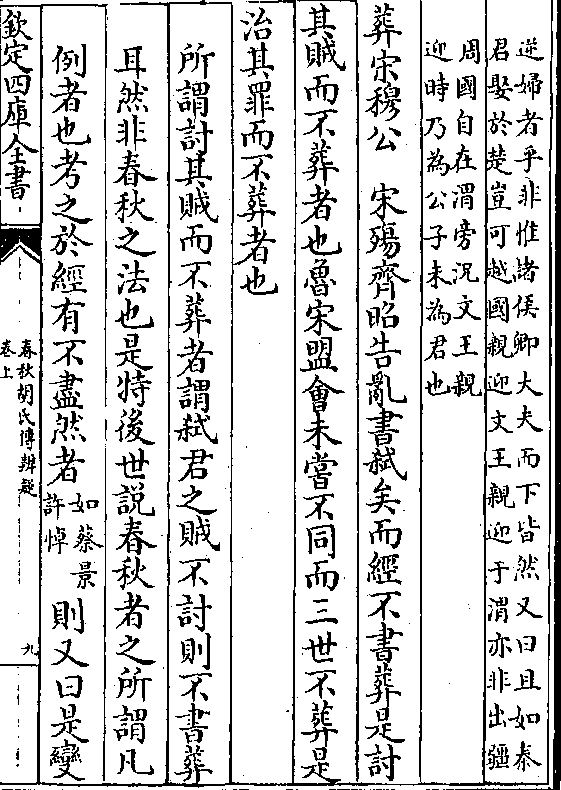 逆婦者乎非惟諸侯卿大夫而下皆然又曰且如秦
君娶於楚豈可越國親迎文王親迎于渭亦非出疆
周國自在渭旁況文王親
迎時乃為公子未為君也
葬宋穆公　宋殤齊昭告亂書弑矣而經不書葬是討
其賊而不葬者也魯宋盟會未嘗不同而三世不葬是
治其罪而不葬者也
所謂討其賊而不葬者謂弑君之賊不討則不書葬
耳然非春秋之法也是特後世説春秋者之所謂凡
例者也考之於經有不盡然者如蔡景許悼則又曰是變
欽定四庫全書
春秋胡氏傳辨疑
卷上
九